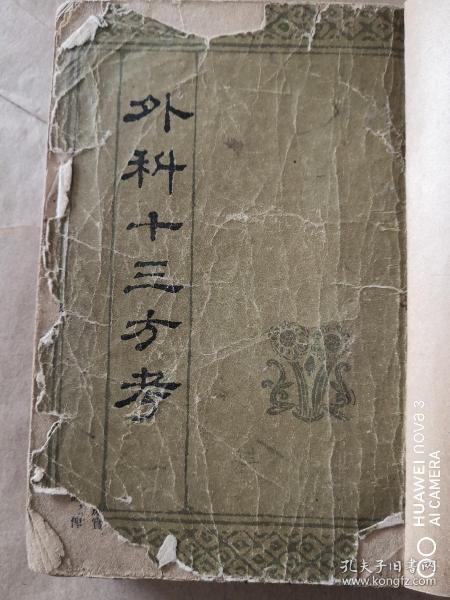 外科十三方考
HUAWEI nova 3
AI CAMERA
孔夫子旧书网
www.kongfz.com